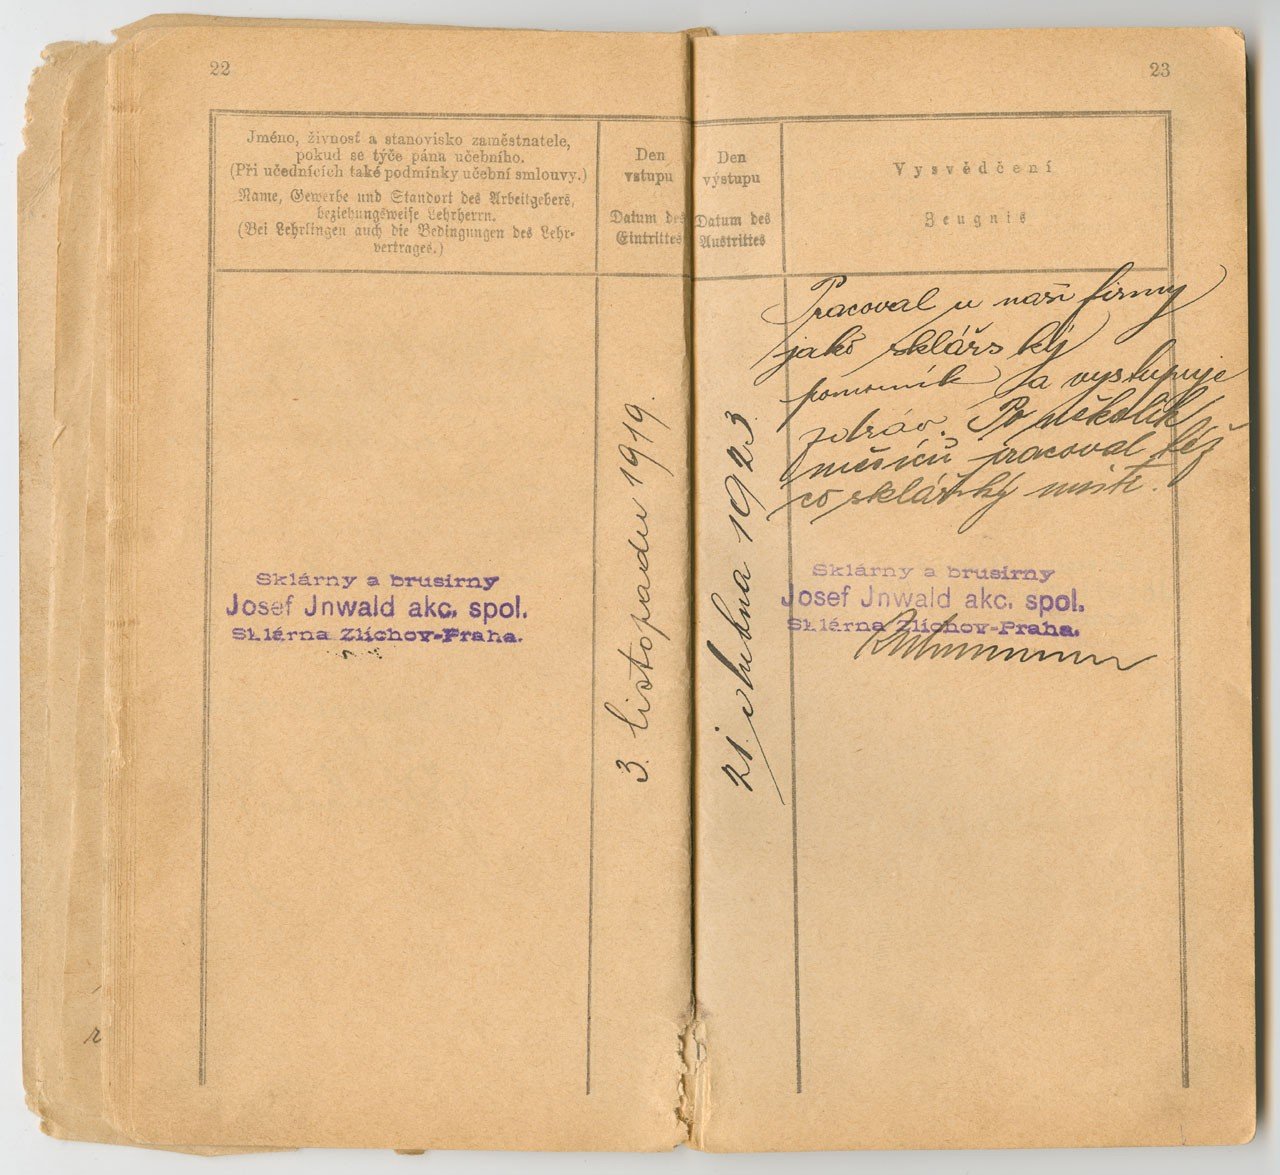 22
Jméno, živnosť a stanovisko zaměstnatele,
pokud se týče pána učebního.
(Při učednících také podmínky učební smlouvy.)
Name, Gewerbe und Standort des Arbeitgebers,
beziehungsweise Lehrherrn.
(Bei Lehrlingen auch die Bedingungen des Lehr-
vertrages.)
Den
vstupu
Datum des
Eintrittes
Sklárny a brusirny
Josef Jnwald akc. spol.
Sklérna Zlíchov-Praha.
3. listopadu 1919.
23
Den
výstupu
Datum des
Austrittes
Vysvědčení
Zeugnis
21. dubna 1923
Pracoval u naší firmy
jako sklářský
pomocník a vystupuje
zdráv. Po několik
měsíců pracoval též
co sklářský mistr.
Sklárny a brusirny
Josef Jnwald akc. spol.
Sklérna Zlíchov-Praha.